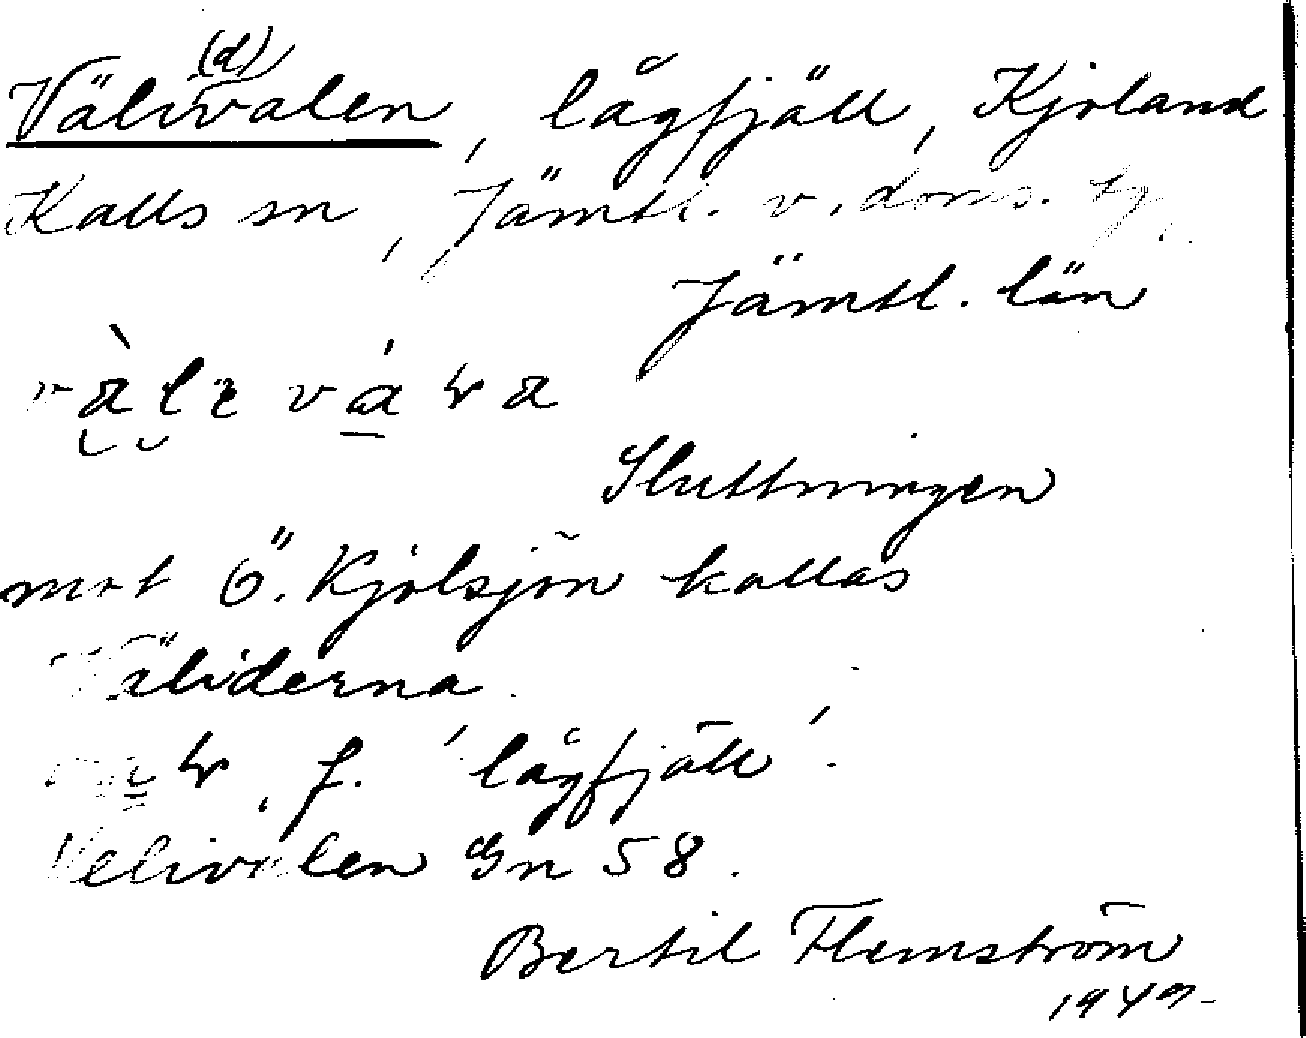 Väli(d)valen, lågfjäll, Kjoland
Kalls sn, Jämtl. v. doms.
Jämtl. län
Sluttningen
mot Ö. Kjolsjön kallas
Väliderna.
f. 'lågfjäll'.
Velivalen Gn 58.
Bertil Flemström
1949